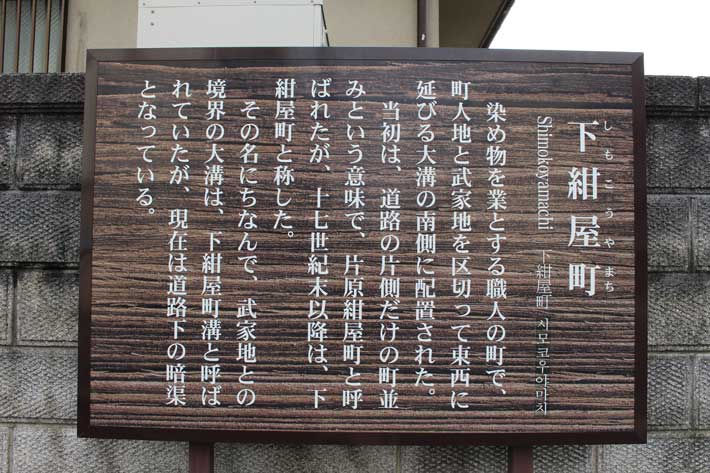 しもこうやまち
下紺屋町
Shimokoyamachi
下紺屋町/시모코우야마치
染め物を業とする職人の町で、
町人地と武家地を区切って東西に
延びる大溝の南側に配置された。
当初は、道路の片側だけの町並
みという意味で、片原紺屋町と呼
ばれたが、十七世紀末以降は、下
紺屋町と称した。
その名にちなんで、武家地との
境界の大溝は、下紺屋町溝と呼ば
れていたが、現在は道路下の暗渠
となっている。